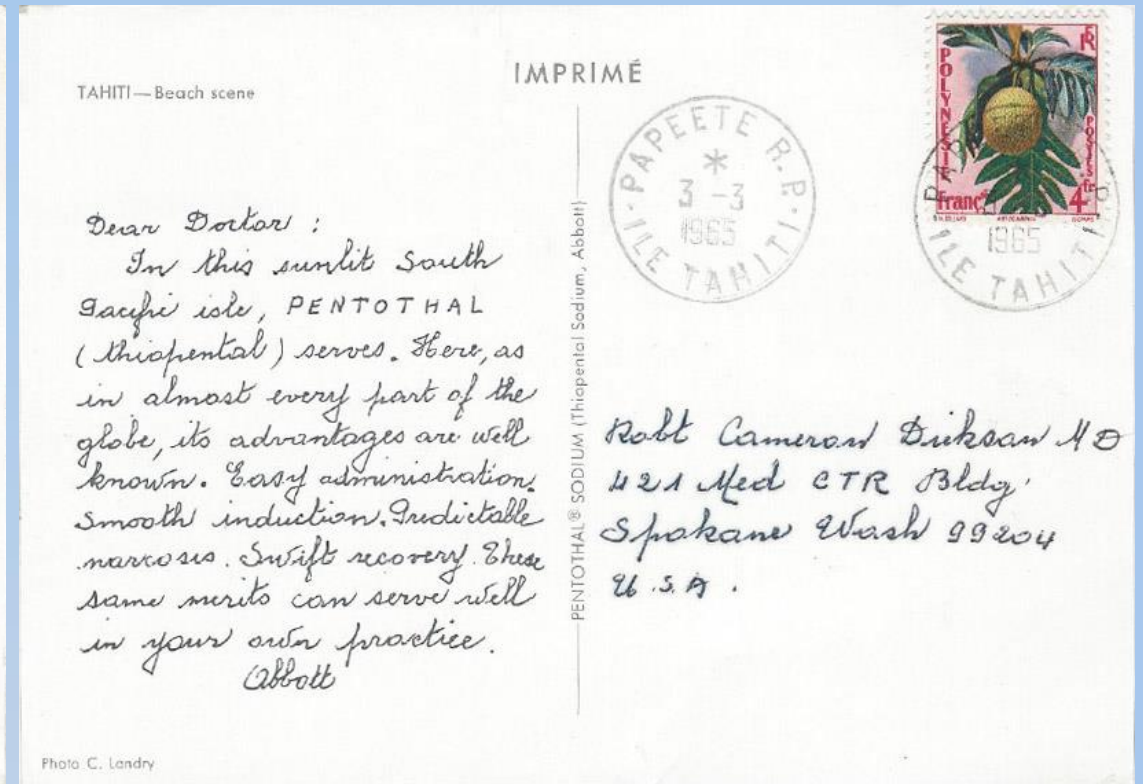 TAHITI—Beach scene
IMPRIMÉ
Dear Doctor :
In this sunlit South
Pacific isle, PENTOTHAL
(thiopental) serves. Here, as
in almost every part of the
globe, its advantages are well
known. Easy administration.
Smooth induction. Predictable
narcosis. Swift recovery. These
same merits can serve well
in your own practice.
Abbott
Photo C. Landry
PENTOTHAL® SODIUM (Thiopental Sodium, Abbott)
PAPEETE R.P.
3 -3
1965
ILE TAHITI
POLYNESIE
française
RF
POSTES
4fr
1965
ILE TAHITI
Robt Cameron Dickson MD
421 Med CTR Bldg
Spokane Wash 99204
U.S.A.